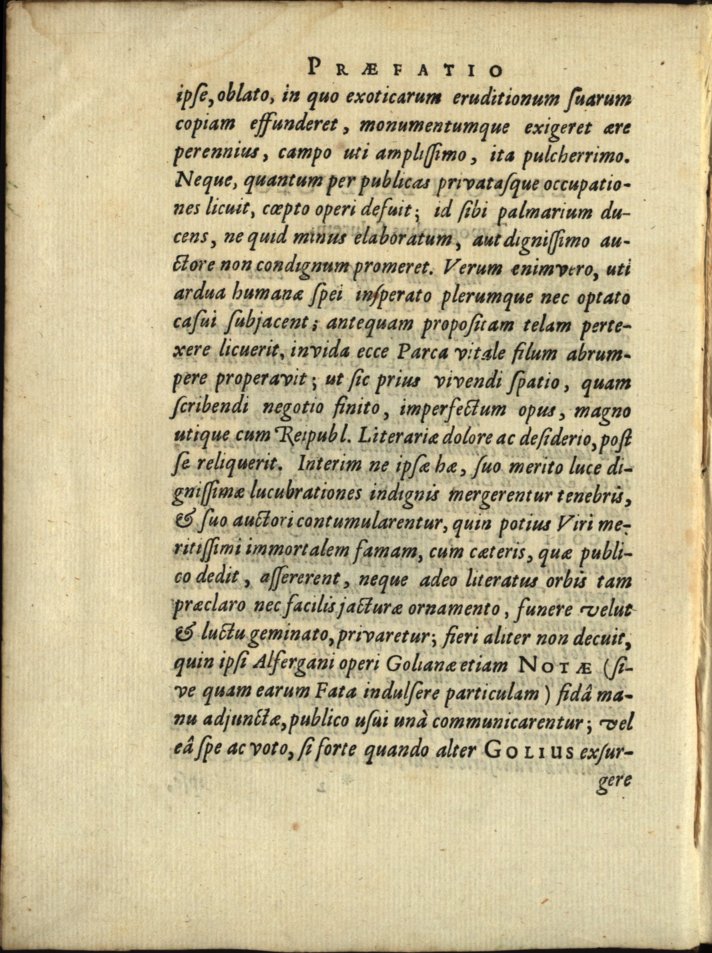 PRÆFATIO
ipſe, oblato, in quo exoticarum eruditionum ſuarum
copiam effunderet, monumentumque exigeret ære
perennius, campo uti ampliſſimo, ita pulcherrimo.
Neque, quantum per publicas privataſque occupatio-
nes licuit, cœpto operi defuit; id ſibi palmarium du-
cens, ne quid minus elaboratum, aut digniſſimo au-
ctore non condignum promeret. Verum enimvero, uti
ardua humanæ ſpei inſperato plerumque nec optato
caſui ſubjacent; antequam propoſitam telam perte-
xere licuerit, invida ecce Parca vitale filum abrum-
pere properavit; ut ſic prius vivendi ſpatio, quam
ſcribendi negotio finito, imperfectum opus, magno
utique cum Reipubl. Literariæ dolore ac deſiderio, poſt
ſe reliquerit. Interim ne ipſæ hæ, ſuo merito luce di-
gniſſimæ lucubrationes indignis mergerentur tenebris,
& ſuo auctori contumularentur, quin potius Viri me-
ritiſſimi immortalem famam, cum cæteris, quæ publi-
co dedit, aſſererent, neque adeo literatus orbis tam
præclaro nec facilis jacturæ ornamento, funere velut
& luctu geminato, privaretur; fieri aliter non decuit,
quin ipſi Alfergani operi Golianæ etiam NOTÆ (ſi-
ve quam earum Fata indulſere particulam) fidâ ma-
nu adjunctæ, publico uſui unà communicarentur; vel
eâ ſpe ac voto, ſi forte quando alter GOLIUS exſur-
gere